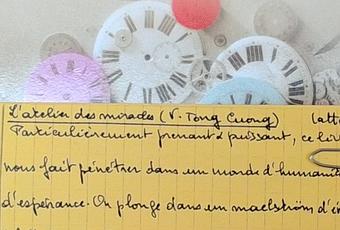 L'atelier des miracles (V. Tong Cuong) (atte
Particulièrement prenant & puissant, ce li
nous fait pénétrer dans un monde d'humanit
d'espérance. On plonge dans un maelström d'é